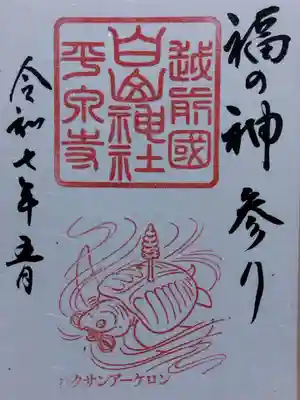 福の神 参り
越前國
白山神社
平泉寺
令和七年五月
クサンアーケロン